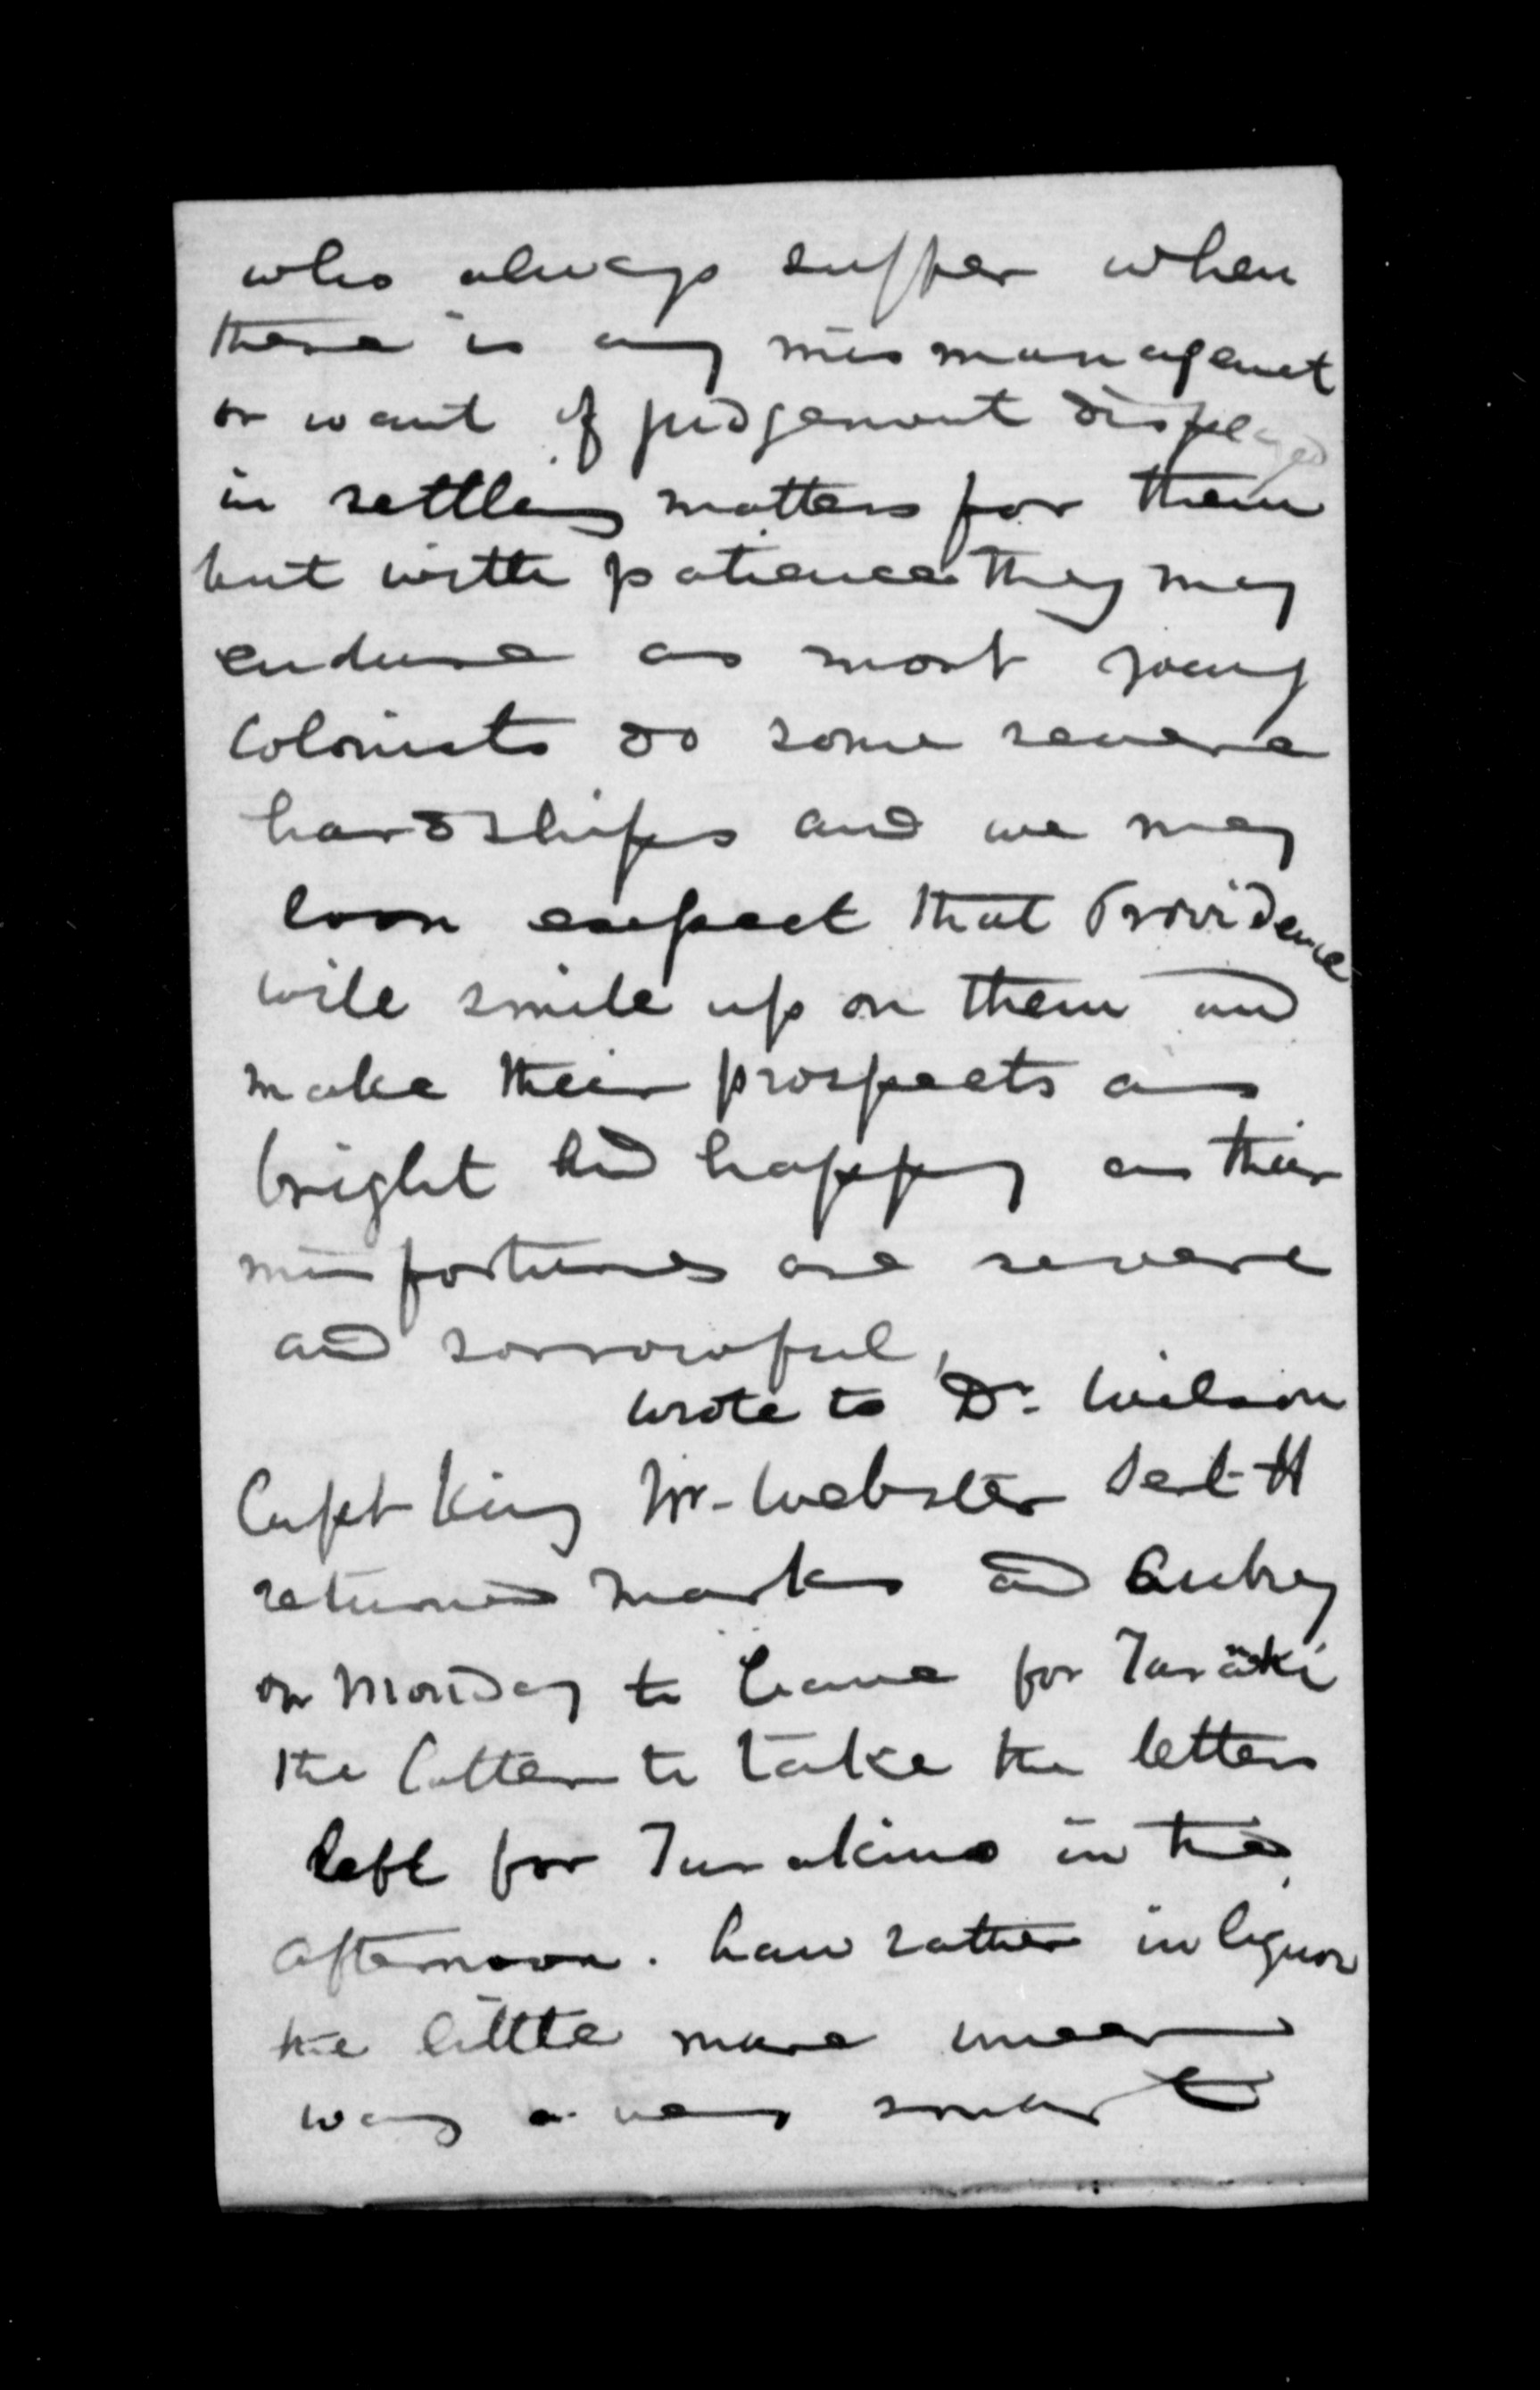 who always suffer when
there is any mismanagement
or want of judgement displayed
in settling matters for them
but with patience they may
endure as most young
Colonists do some severe
hardships and we may
soon expect that Providence
will smile up on them and
make their prospects as
bright and happy as their
misfortunes are severe
and sorrowful,
wrote to Dr. Wilson
Capt King Mr. Webster
returned Marks and Aubrey
on Monday to leave for
the latter to take the letters
left for Turakina in the
afternoon. rather in liquor
the little mare
way a very smart